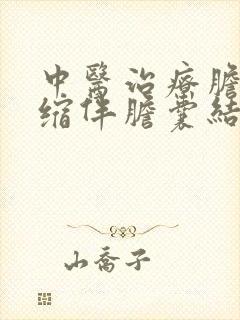 中醫治療膽
缩伴膽囊結
山喬子